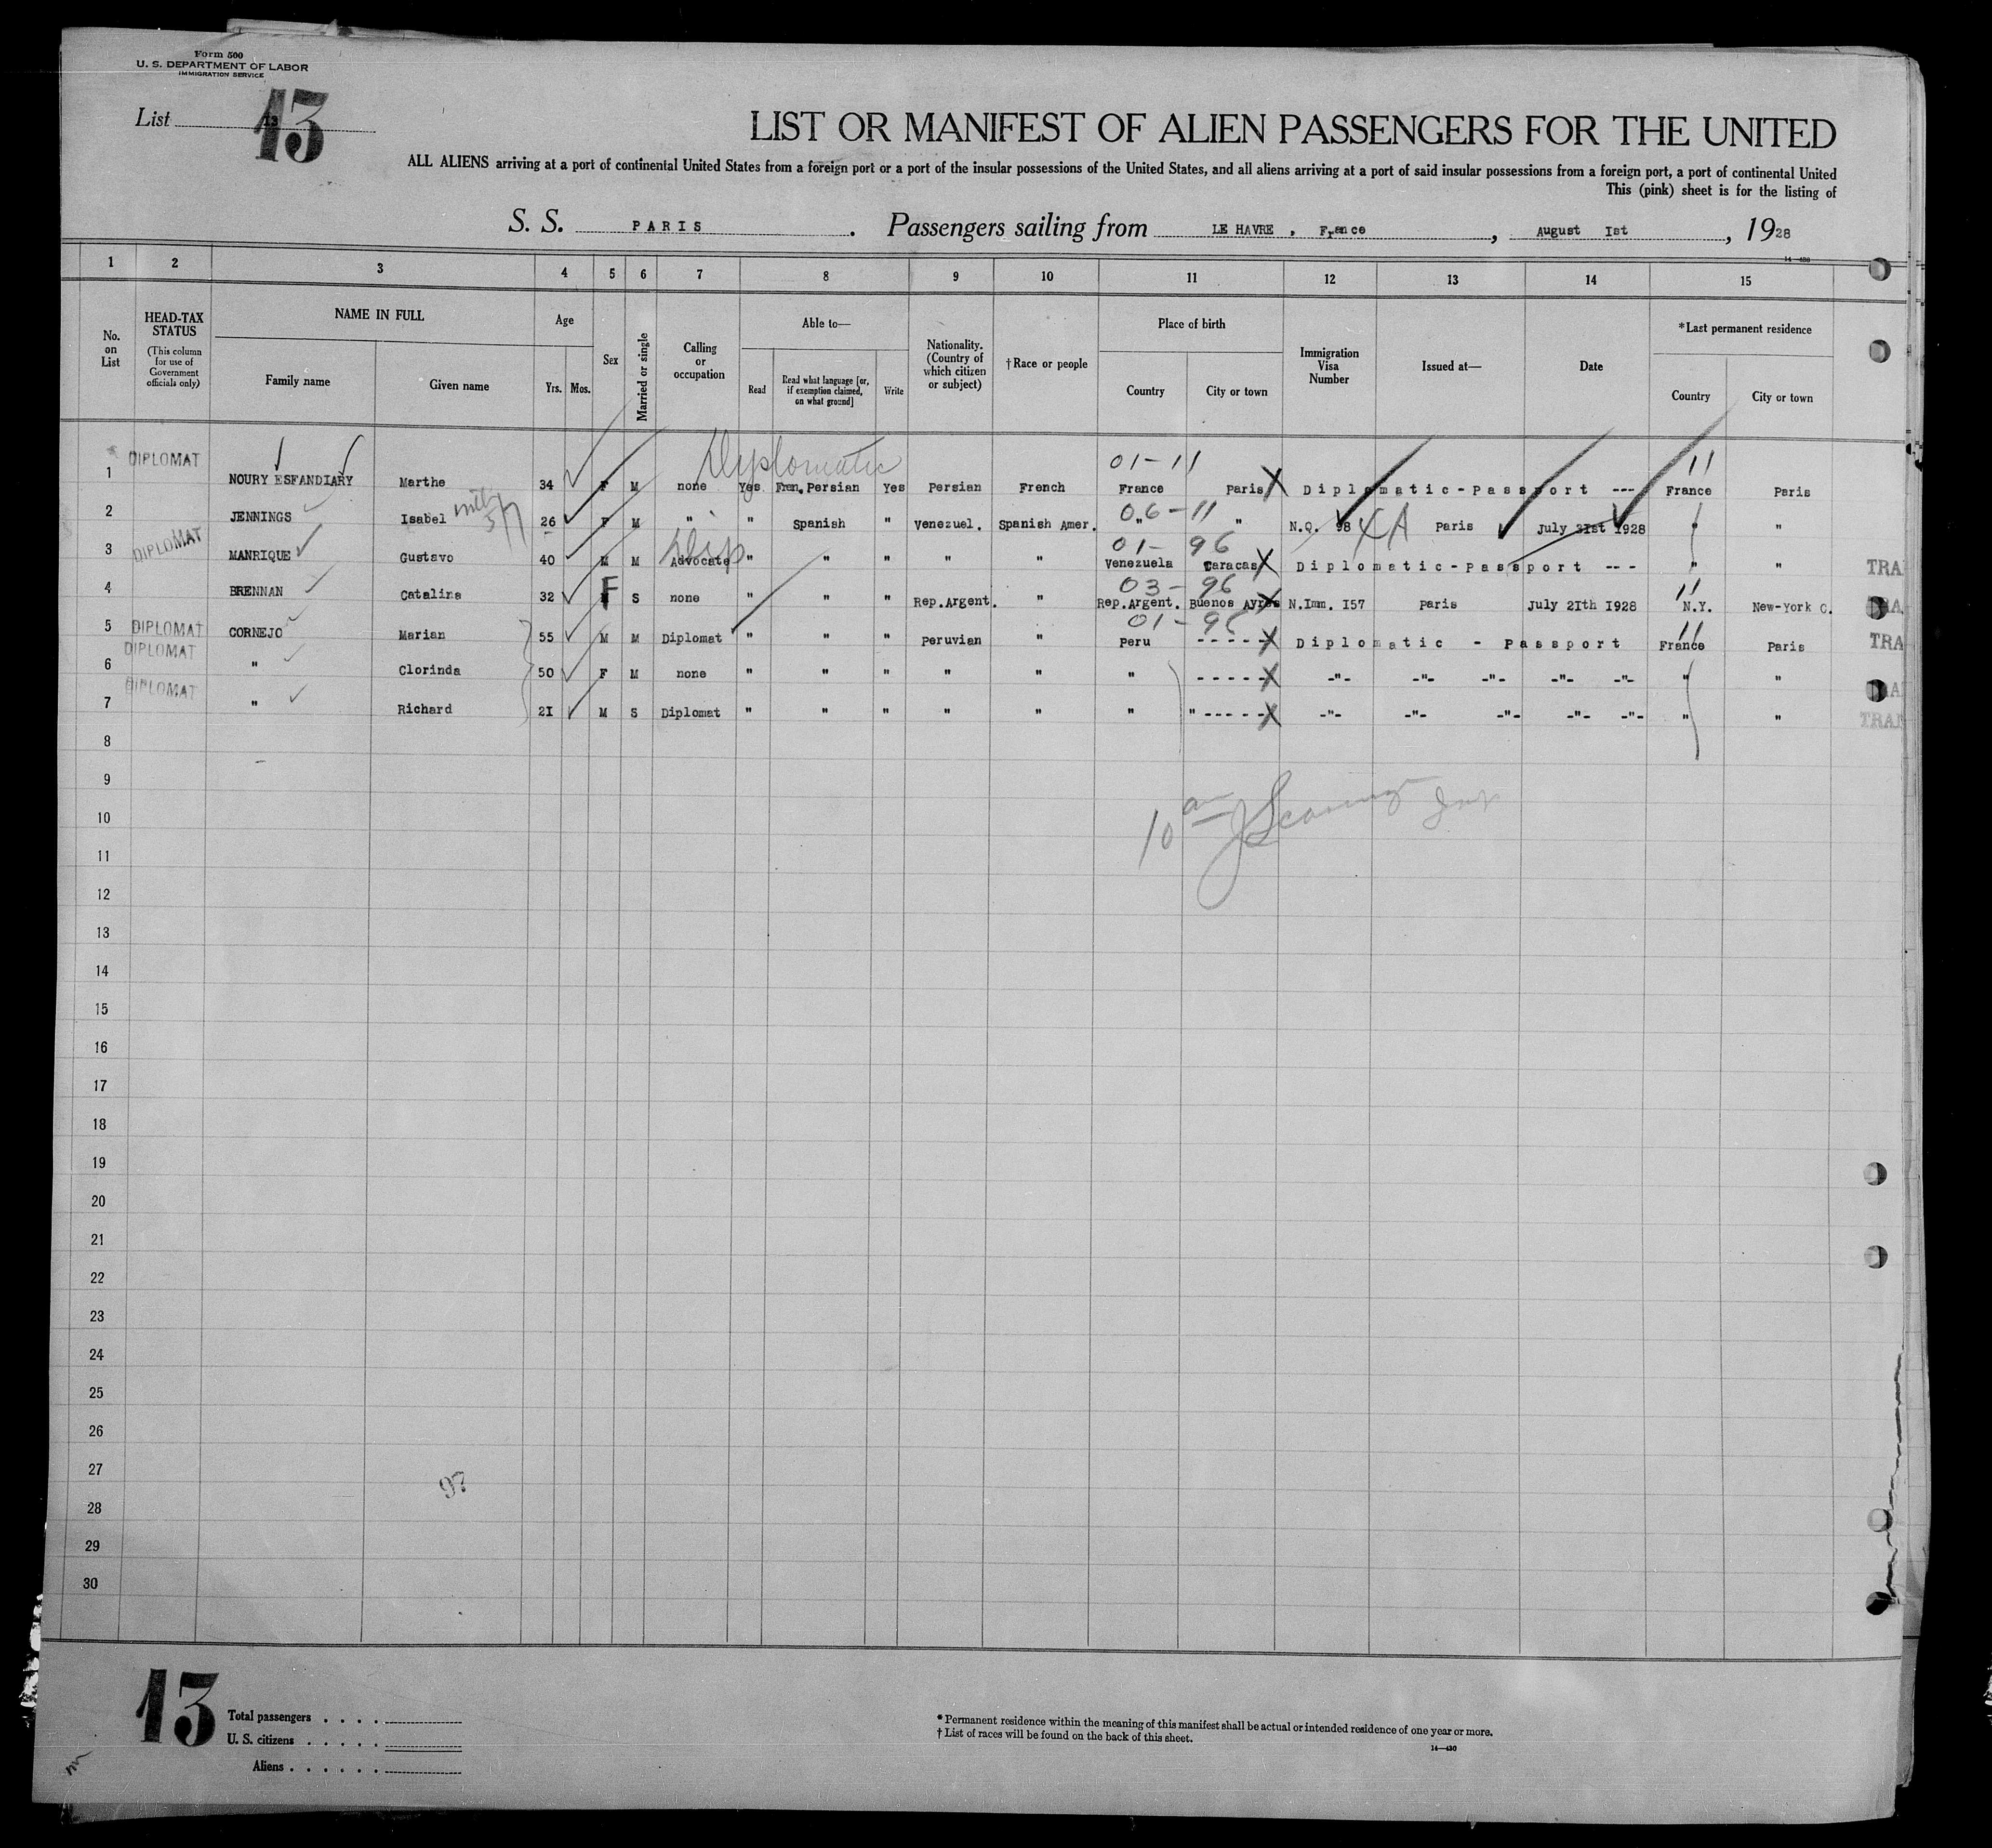 Form 500
U. S. DEPARTMENT OF LABOR
IMMIGRATION SERVICE
List 13
13
LIST OR MANIFEST OF ALIEN PASSENGERS FOR THE UNITED
ALL ALIENS arriving at a port of continental United States from a foreign port or a port of the insular possessions of the United States, and all aliens arriving at a port of said insular possessions from a foreign port, a port of continental United
This (pink) sheet is for the listing of
S. S. PARIS. Passengers sailing from LE HAVRE , France, August Ist, 1928
14—430
1 2 3 4 5 6 7 8 9 10 11 12 13 14 15
No. on List
HEAD-TAX STATUS
(This column for use of Government officials only)
NAME IN FULL
Family name
Given name
Age
Yrs.
Mos.
Sex
Married or single
Calling or occupation
Able to—
Read
Read what language [or, if exemption claimed, on what ground]
Write
Nationality. (Country of which citizen or subject)
†Race or people
Place of birth
Country
City or town
Immigration Visa Number
Issued at—
Date
*Last permanent residence
Country
City or town
Diplomatic 01-11 11
1 DIPLOMAT NOURY ESFANDIARY Marthe 34 F M none Yes Fren. Persian Yes Persian French France Paris X Diplomatic-Passport --- France Paris
06-11
2 JENNINGS Isabel 26 F M " " Spanish " Venezuel. Spanish Amer. " " N.Q. 98 Paris July 21st 1928 " "
Dip 01- 96
3 DIPLOMAT MANRIQUE Gustavo 40 M M Advocate " " " " " Venezuela Caracas X Diplomatic-Passport --- " " TRA
03-96 11
4 BRENNAN Catalina 32 F S none " " " Rep.Argent. " Rep.Argent. Buenos Ayres X N.Imm. I57 Paris July 2Ith I928 N.Y. New-York C.
01-96 11
5 DIPLOMAT CORNEJO Marian 55 M M Diplomat " " " Peruvian " Peru ----- X Diplomatic - Passport France Paris TRA
6 DIPLOMAT " Clorinda 50 F M none " " " " " " ----- X -"- -"- -"- -"- -"- " "
7 DIPLOMAT " Richard 2I M S Diplomat " " " " " " "----- X -"- -"- -"- -"- -"- " " TRA
8
9
10
10 am
11
12
13
14
15
16
17
18
19
20
21
22
23
24
25
26
27
97
28
29
30
13
Total passengers . . . .
U. S. citizens . . . . .
Aliens . . . . . .
* Permanent residence within the meaning of this manifest shall be actual or intended residence of one year or more.
† List of races will be found on the back of this sheet.
14—430